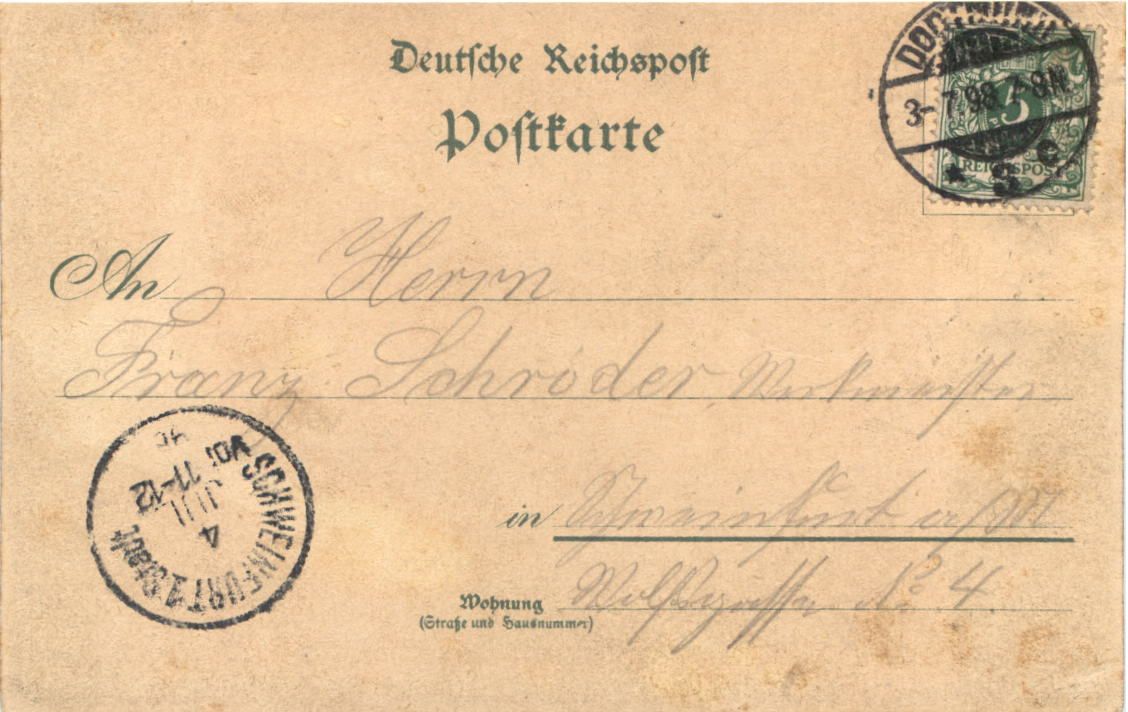 Deutsche Reichspost
Postkarte
DORTMUND
3-7 98 7-8N.
* 3 c
5
REICHSPOST
An Herrn
Franz Schröder, Werkmeister
in Schweinfurt a/M
Wohnung Wolfsgasse No 4
(Straße und Hausnummer)
SCHWEINFURT 1 Stadt
4
JUL
Vor 11-12